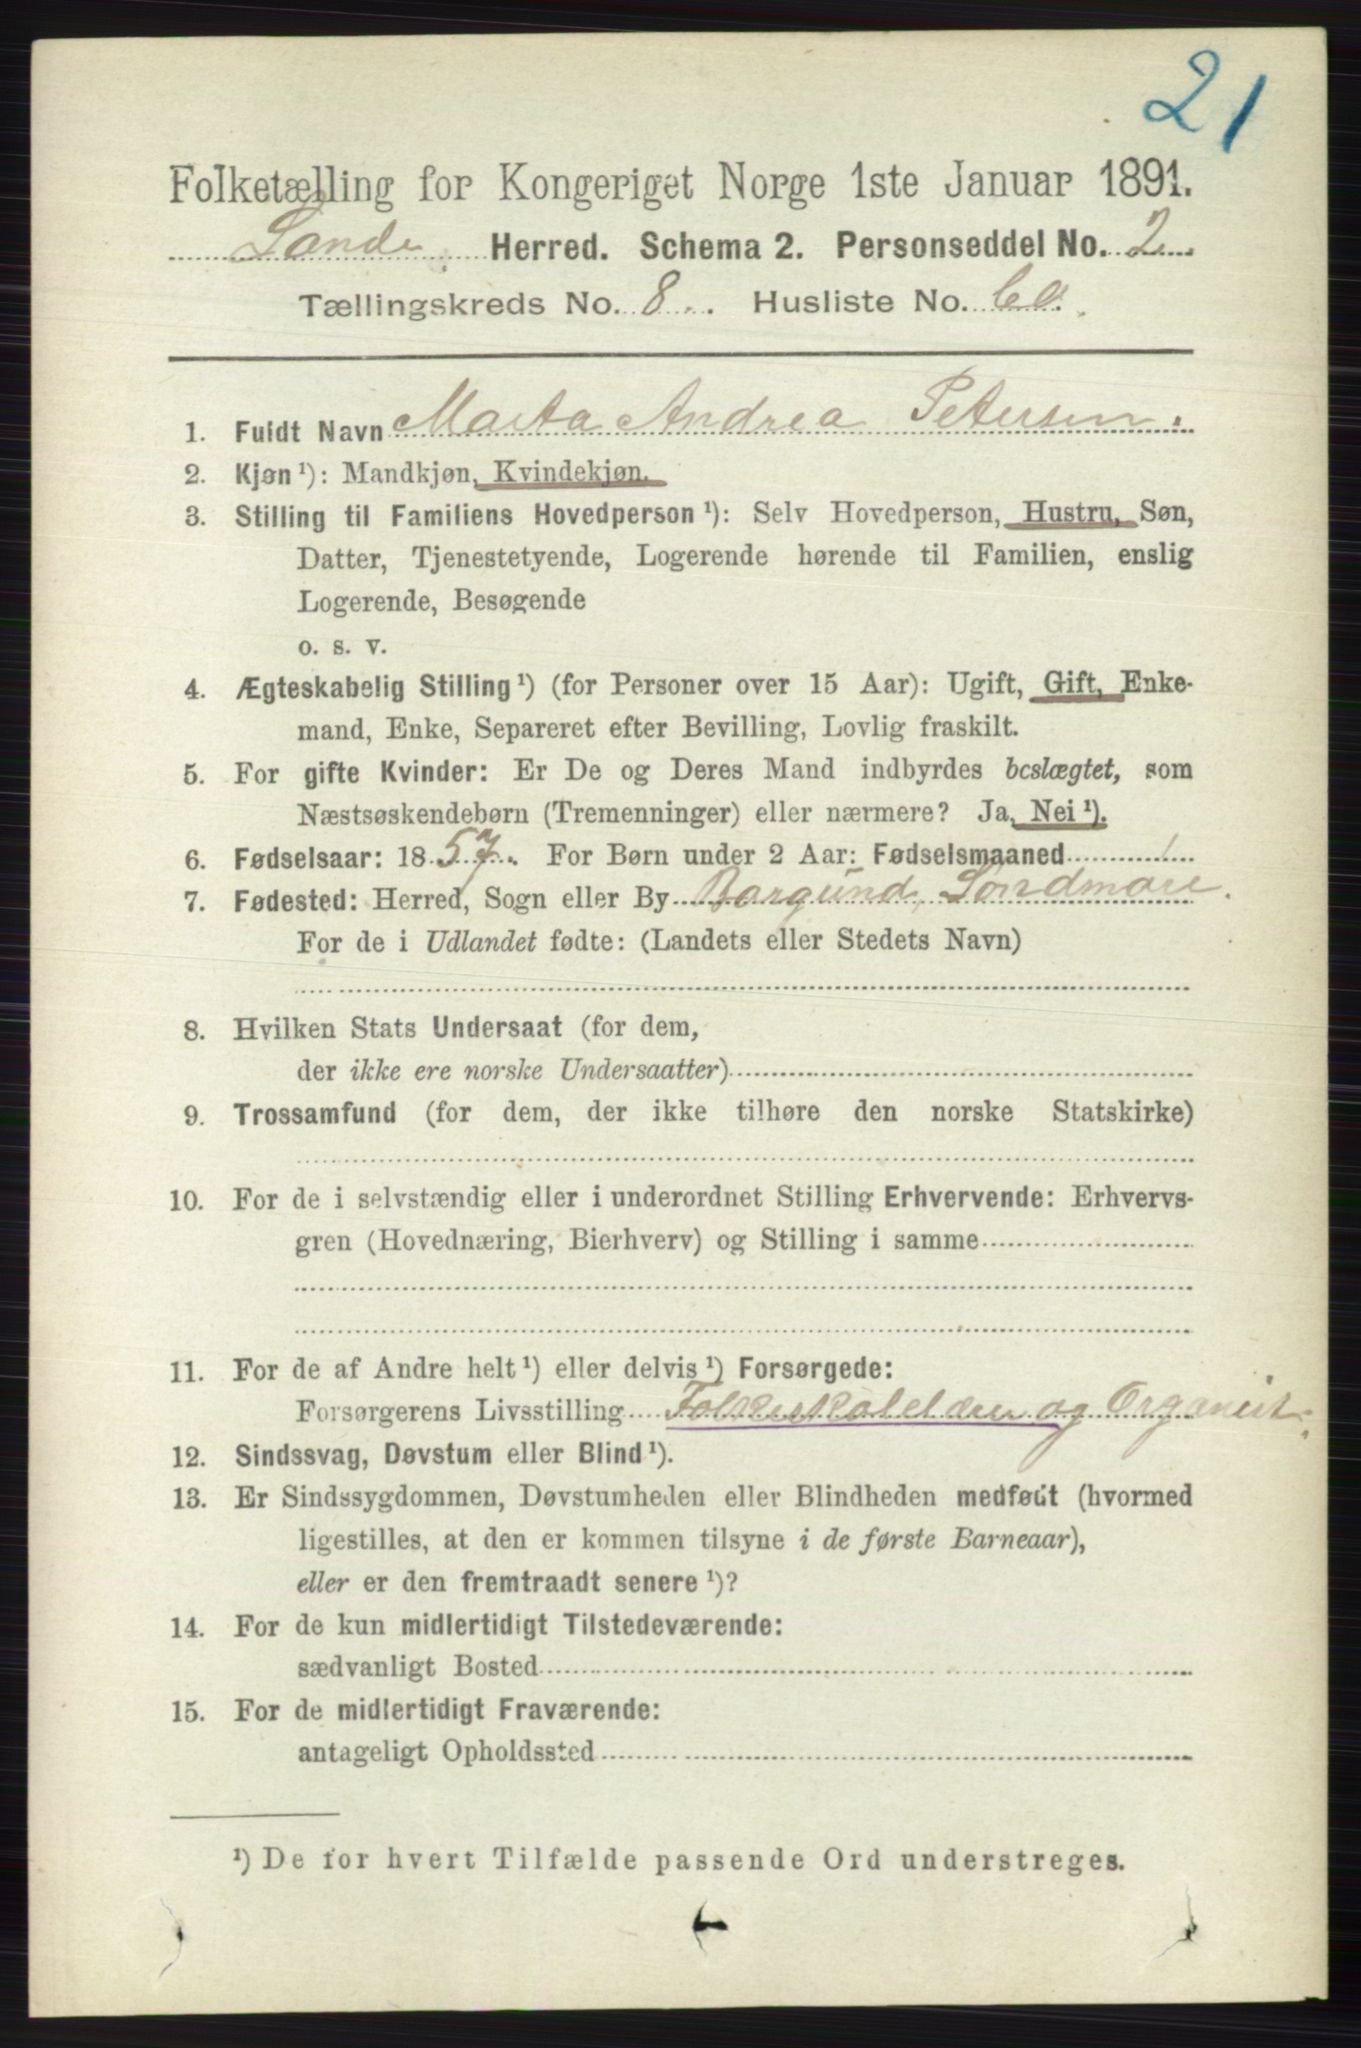 21
Folketælling for Kongeriget Norge 1ste Januar 1891.
Sande Herred. Schema 2. Personseddel No. 2
Tællingskreds No. 8 Husliste No. 60.
1. Fuldt Navn Marta Andrea Petersen.
2. Kjøn ¹): Mandkjøn, Kvindekjøn.
3. Stilling til Familiens Hovedperson ¹): Selv Hovedperson, Hustru, Søn,
Datter, Tjenestetyende, Logerende hørende til Familien, enslig
Logerende, Besøgende
o. s. v.
4. Ægteskabelig Stilling ¹) (for Personer over 15 Aar): Ugift, Gift, Enke-
mand, Enke, Separeret efter Bevilling, Lovlig fraskilt.
5. For gifte Kvinder: Er De og Deres Mand indbyrdes beslægtet, som
Næstsøskendebørn (Tremenninger) eller nærmere? Ja, Nei ¹).
6. Fødselsaar: 1857. For Børn under 2 Aar: Fødselsmaaned
7. Fødested: Herred, Sogn eller By Borgund, Søndmøre.
For de i Udlandet fødte: (Landets eller Stedets Navn)
8. Hvilken Stats Undersaat (for dem,
der ikke ere norske Undersaatter)
9. Trossamfund (for dem, der ikke tilhøre den norske Statskirke)
10. For de i selvstændig eller i underordnet Stilling Erhvervende: Erhvervs-
gren (Hovednæring, Bierhverv) og Stilling i samme
11. For de af Andre helt ¹) eller delvis ¹) Forsørgede:
Forsørgerens Livsstilling Folkeskolelærer og Organist.
12. Sindssvag, Døvstum eller Blind ¹).
13. Er Sindssygdommen, Døvstumheden eller Blindheden medfødt (hvormed
ligestilles, at den er kommen tilsyne i de første Barneaar),
eller er den fremtraadt senere ¹)?
14. For de kun midlertidigt Tilstedeværende:
sædvanligt Bosted
15. For de midlertidigt Fraværende:
antageligt Opholdssted
¹) De for hvert Tilfælde passende Ord understreges.